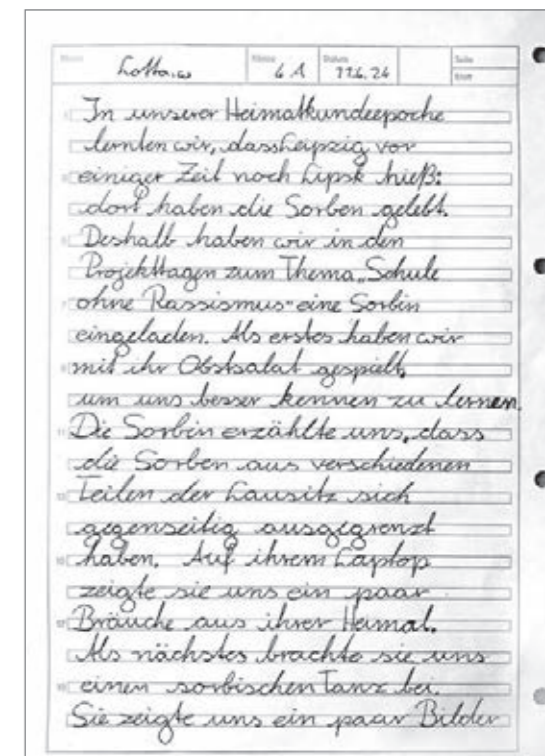 Name Lotta.W Klasse 4A Datum 11.6.24 Seite
Blatt
In unserer Heimatkundeepoche
lernten wir, dass Leipzig vor
einiger Zeit noch Lipsk hieß:
dort haben die Sorben gelebt.
Deshalb haben wir in den
Projekttagen zum Thema „Schule
ohne Rassismus“ eine Sorbin
eingeladen. Als erstes haben wir
mit ihr Obstsalat gespielt,
um uns besser kennen zu lernen.
Die Sorbin erzählte uns, dass
die Sorben aus verschiedenen
Teilen der Lausitz sich
gegenseitig ausgegrenzt
haben. Auf ihrem Laptop
zeigte sie uns ein paar
Bräuche aus ihrer Heimat.
Als nächstes brachte sie uns
einen sorbischen Tanz bei.
Sie zeigte uns ein paar Bilder